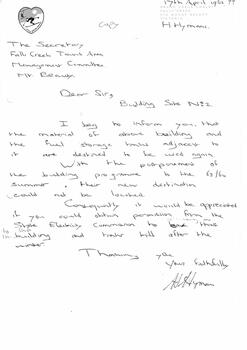 17th April 1962 ??
H Hyman
The Secretary
Falls Creek Tourist Area
Management Committee
Mt Beauty
Dear Sir,
Building Site No 2.
I beg to inform you, that
the material of above building and
the fuel storage tanks adjacent to
it are destined to be used again.
With the postponement of
the building programme to the 63/64
summer, their new destination
could not be located.
Consequently it would be appreciated
if you could obtain permission from the
State Electricity Commission to leave that
building and tanks till after the
winter
Thanking you
Yours faithfully
H Hyman